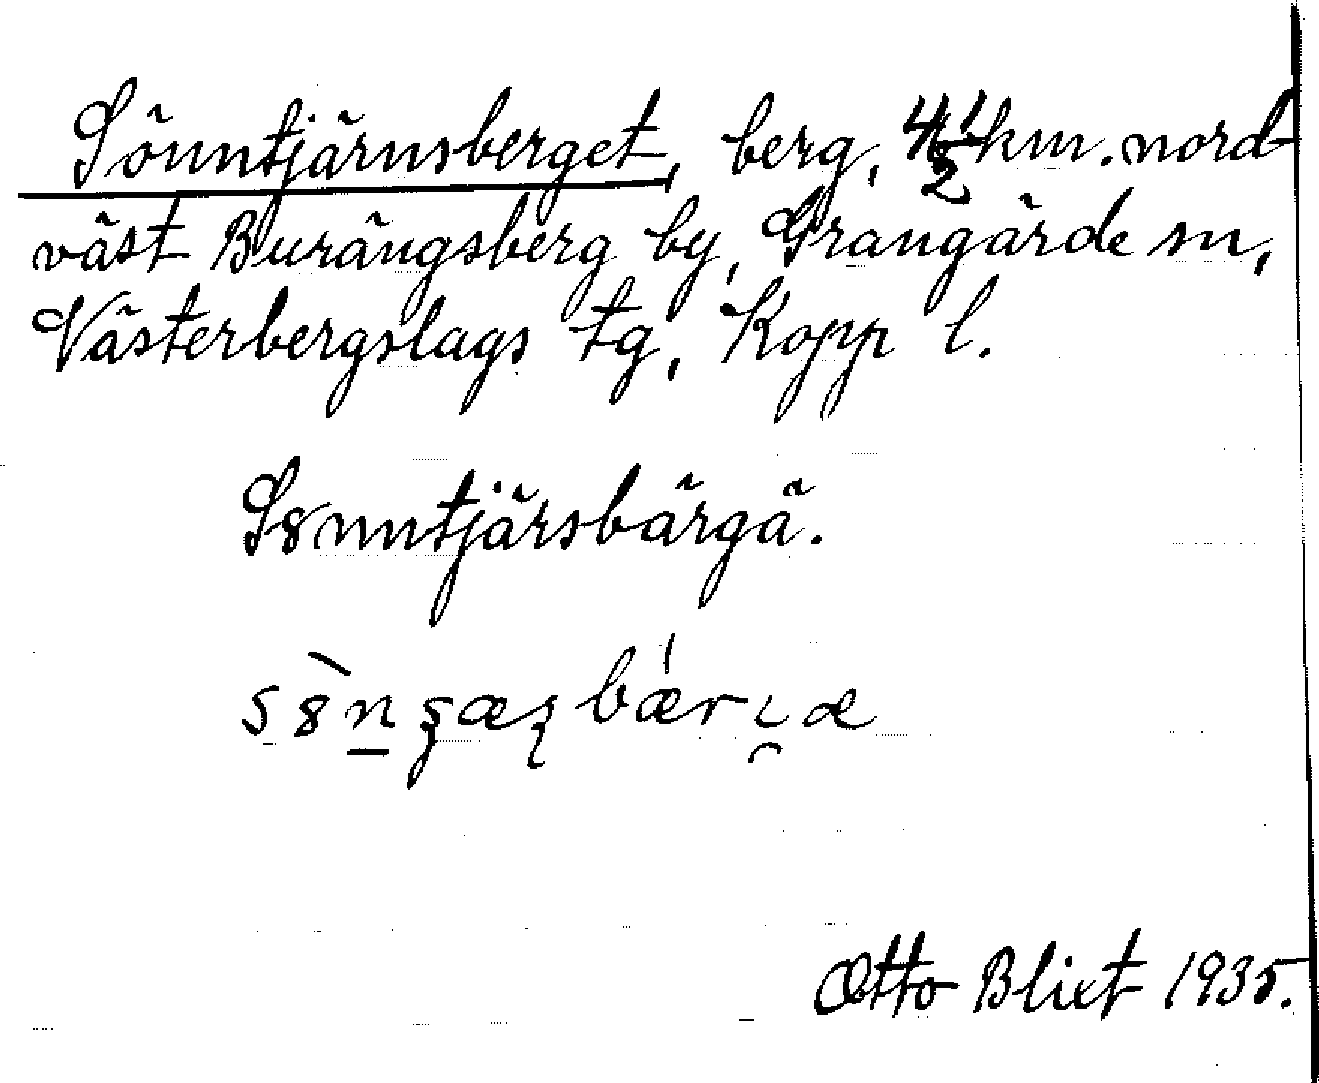 Sönntjärnsberget, berg, 4 1/2 km. nord
väst Burängsberg by, Grangärde sn,
Västerbergslags tg, Kopp l.
S8nntjärsbärgä.
Otto Blixt 1935.